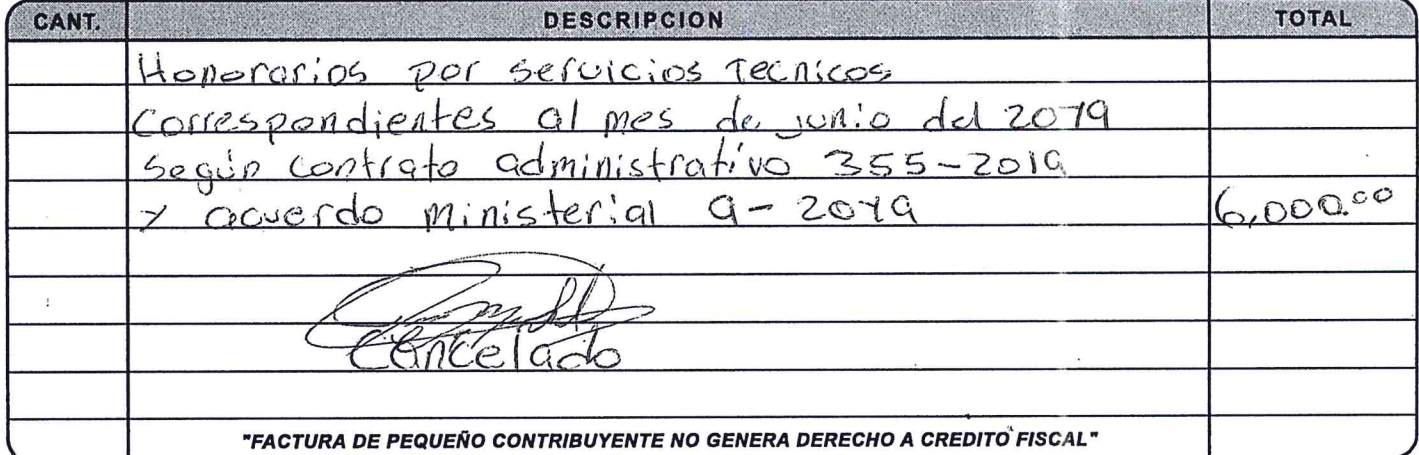 CANT. DESCRIPCION TOTAL
Honorarios por servicios Tecnicos
correspondientes al mes de junio del 2019
según contrato administrativo 355-2019
y acuerdo ministerial 9-2019 6,000.00
Cancelado
"FACTURA DE PEQUEÑO CONTRIBUYENTE NO GENERA DERECHO A CREDITO FISCAL"